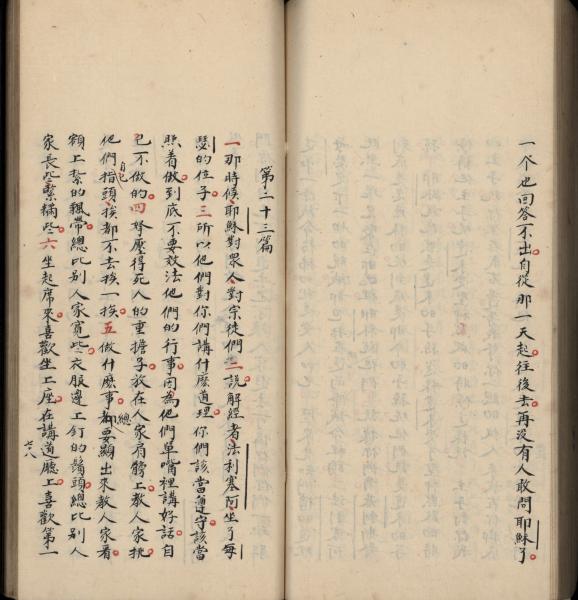 一个也回答不出自從那一天起往後去再没有人敢問耶穌了
第二十三篇
一那時候耶穌對衆人對宗徒們二説解經者法利塞阿坐了每
瑟的位子三所以他們對你們講什麽道理你們該當遵守該當
照着做到底不要效法他們的行事因為他們単嘴裡講好話自
己不做的四拏壓得死人的重擔子放在人家肩膀上教人家挑
他們自己指頭挨都不去挨一挨五做什麽事都總要顯出來教人家看
額上紮的飄帶總比别人家寛些衣服邊上釘的鬚頭總比别人
家長些繁稠些六坐起席來喜歡坐上座在講道廳上喜歡第一
七八